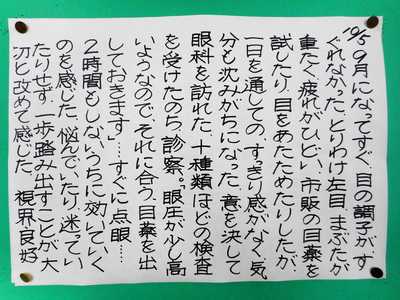 10/5
９月になってすぐ、目の調子がす
ぐれなかった。とりわけ左目、まぶたが
重たく疲れがひどい。市販の目薬を
試したり、目をあたためたりしたが、
一日を通しての、すっきり感がなく気
分も沈みがちになった。意を決して
眼科を訪れた。十種類ほどの検査
を受けたのち、診察。"眼圧が少し高
いようなので、それに合う、目薬を出
しておきます…。すぐに点眼……
２時間もしないうちに効いていく
のを感じた。悩んでいたり、迷ってい
たりせず、一歩踏み出すことが大
切と改めて感じた。 視界良好